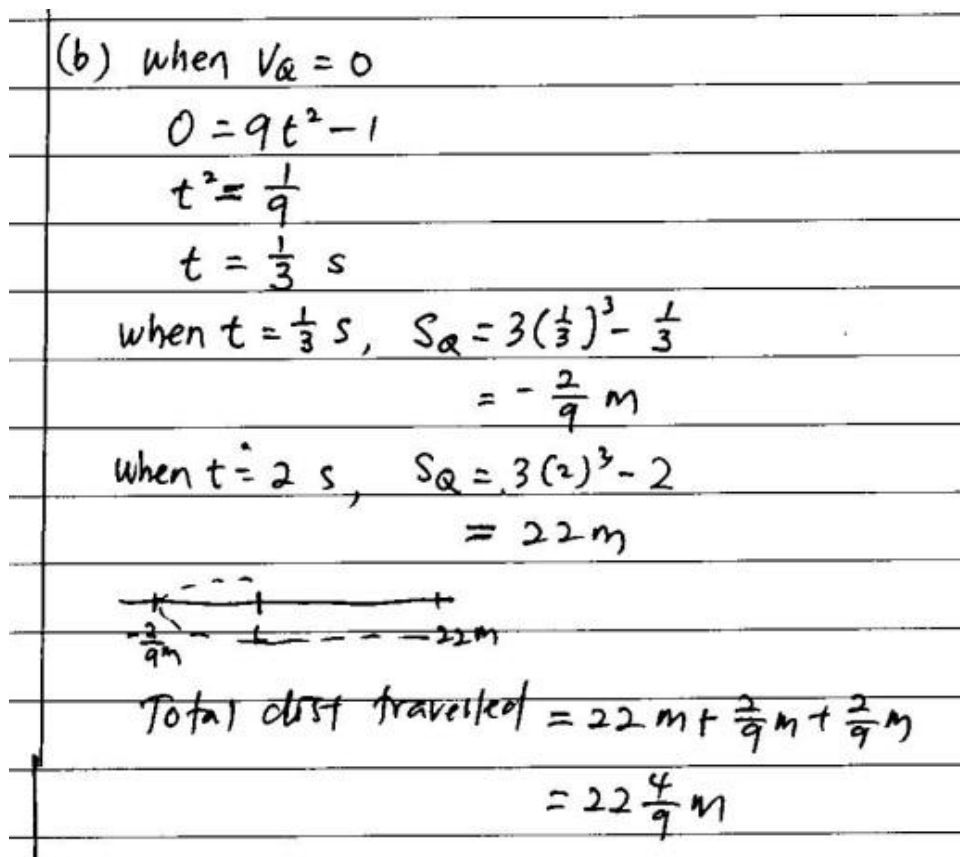 (b) when V_Q = 0
0 = 9t² - 1
t² = 1/9
t = 1/3 s
when t = 1/3 s, S_Q = 3(1/3)³ - 1/3
= - 2/9 m
when t = 2 s, S_Q = 3(2)³ - 2
= 22 m
-2/9 m 22m
Total dist travelled = 22 m + 2/9 m + 2/9 m
= 22 4/9 m